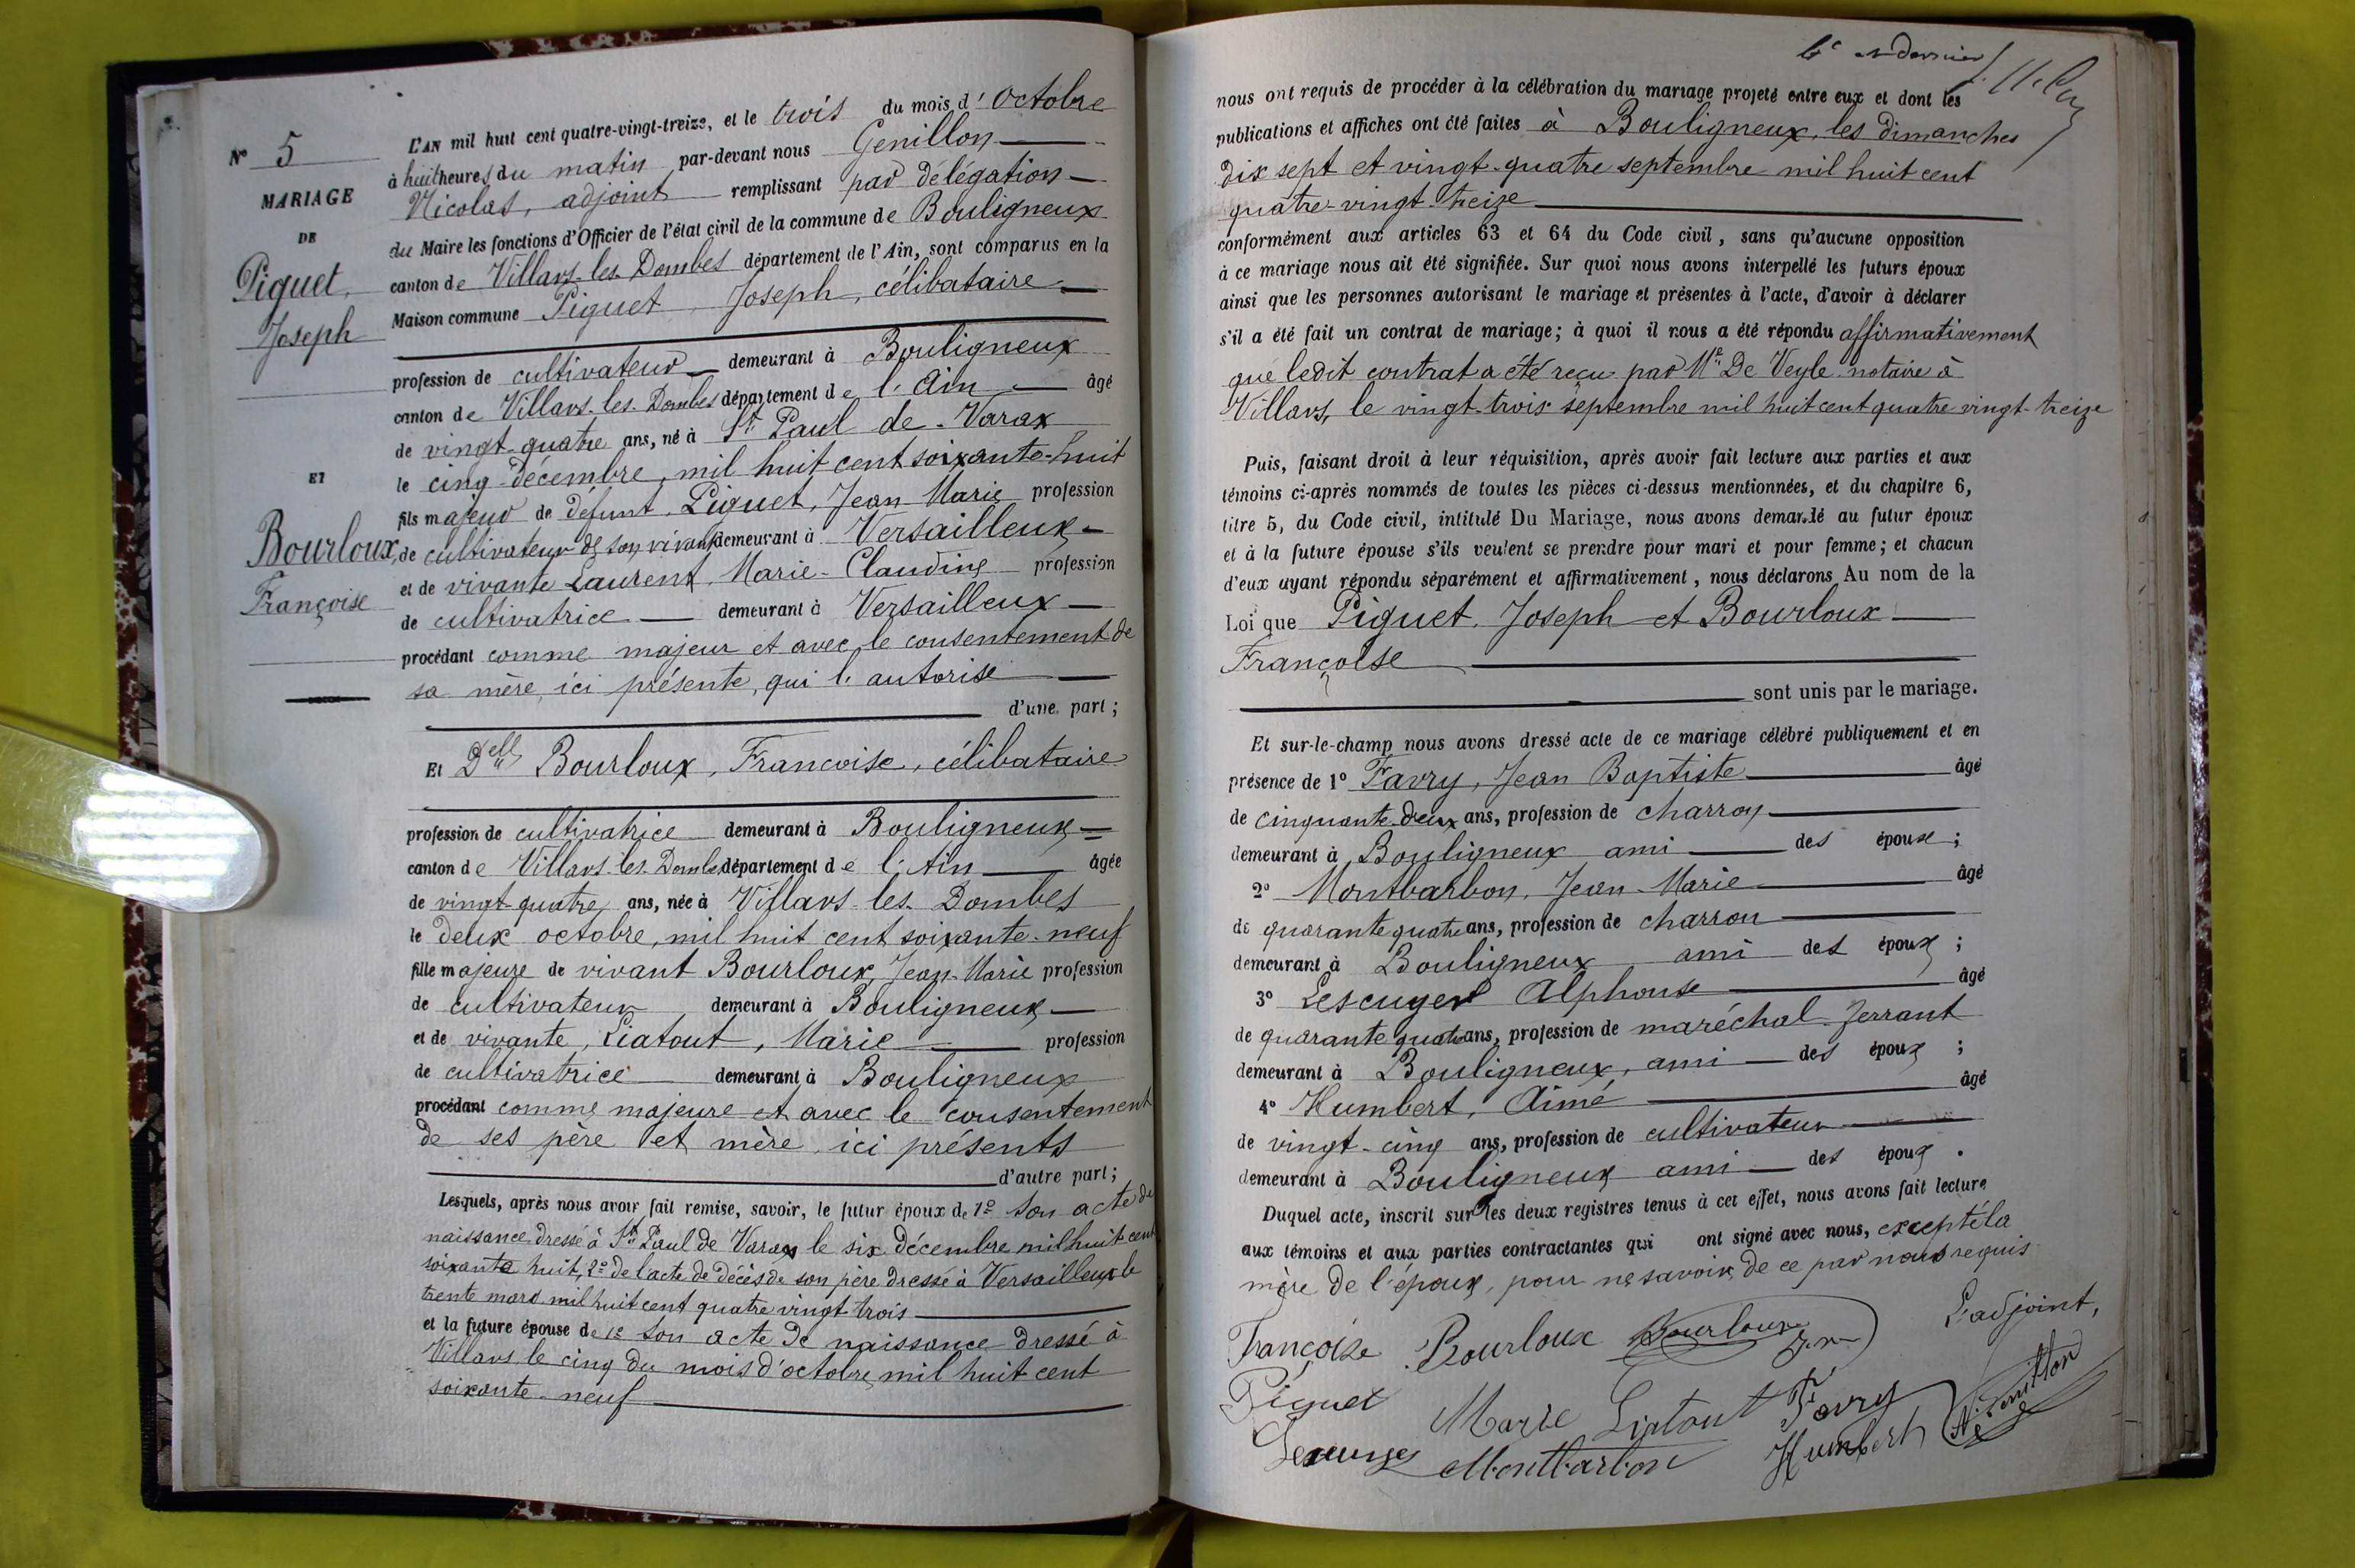 N° 5
MARIAGE
DE
Piguet,
Joseph
ET
Bourloux,
Françoise
L'AN mil huit cent quatre-vingt-treize, et le trois du mois d'octobre
à huit heures du matin par-devant nous Genillon
Nicolas, adjoint remplissant par délégation
du Maire les fonctions d'Officier de l'état civil de la commune de Bouligneux
canton de Villars-les-Dombes département de l'Ain, sont comparus en la
Maison commune Piguet, Joseph, célibataire
profession de cultivateur demeurant à Bouligneux
canton de Villars-les-Dombes département de l'Ain âgé
de vingt-quatre ans, né à St Paul de-Varax
le cinq décembre, mil huit cent soixante-huit
fils majeur de défunt, Piguet, Jean Marie profession
de cultivateur de son vivant demeurant à Versailleux
et de vivante Laurent, Marie-Claudine profession
de cultivatrice demeurant à Versailleux
procédant comme majeur et avec le consentement de
sa mère, ici présente, qui l'autorise
d'une part;
Et Delle Bourloux, Francoise, célibataire
profession de cultivatrice demeurant à Bouligneux
canton de Villars-les-Dombes département de l'Ain âgée
de vingt-quatre ans, née à Villars-les-Dombes
le deux octobre, mil huit cent soixante-neuf
fille majeure de vivant Bourloux, Jean-Marie profession
de cultivateur demeurant à Bouligneux
et de vivante, Liatout, Marie profession
de cultivatrice demeurant à Bouligneux
procédant comme majeure et avec le consentement
de ses père et mère, ici présents
d'autre part;
Lesquels, après nous avoir fait remise, savoir, le futur époux de 1° son acte de
naissance dressé à St Paul de Varax le six décembre mil huit cent
soixante huit, 2° de l'acte de décès de son père dressé à Versailleux le
trente mars mil huit cent quatre vingt-trois
et la future épouse de 1° son acte de naissance dressé à
Villars le cinq du mois d'octobre mil huit cent
soixante-neuf
et dernier
nous ont requis de procéder à la célébration du mariage projeté entre eux et dont les
publications et affiches ont été faites à Bouligneux, les dimanches
dix sept et vingt-quatre septembre mil huit cent
quatre-vingt-treize
conformément aux articles 63 et 64 du Code civil, sans qu'aucune opposition
à ce mariage nous ait été signifiée. Sur quoi nous avons interpellé les futurs époux
ainsi que les personnes autorisant le mariage et présentes à l'acte, d'avoir à déclarer
s'il a été fait un contrat de mariage; à quoi il nous a été répondu affirmativement
que ledit contrat a été reçu par Me De Veyle notaire à
Villars, le vingt-trois septembre mil huit cent quatre vingt-treize
Puis, faisant droit à leur réquisition, après avoir fait lecture aux parties et aux
témoins ci-après nommés de toutes les pièces ci-dessus mentionnées, et du chapitre 6,
titre 5, du Code civil, intitulé Du Mariage, nous avons demandé au futur époux
et à la future épouse s'ils veulent se prendre pour mari et pour femme; et chacun
d'eux ayant répondu séparément et affirmativement, nous déclarons Au nom de la
Loi que Piguet, Joseph et Bourloux
Françoise
sont unis par le mariage.
Et sur-le-champ nous avons dressé acte de ce mariage célébré publiquement et en
présence de 1° Favry, Jean Baptiste âgé
de cinquante-deux ans, profession de charron
demeurant à Bouligneux ami des époux;
2° Montbarbon, Jean-Marie âgé
de quarante quatre ans, profession de charron
demeurant à Bouligneux ami des époux;
3° Lescuyer Alphonse âgé
de quarante quatre ans, profession de maréchal-ferrant
demeurant à Bouligneux, ami des époux;
4° Humbert, Aimé âgé
de vingt-cinq ans, profession de cultivateur
demeurant à Bouligneux ami des époux.
Duquel acte, inscrit sur les deux registres tenus à cet effet, nous avons fait lecture
aux témoins et aux parties contractantes qui ont signé avec nous, excepté la
mère de l'époux, pour ne savoir, de ce par nous requis
Françoise Bourloux Bourloux L'adjoint,
Piguet Marie Liatout Favry
Montbarbon Humbert N. Genillon